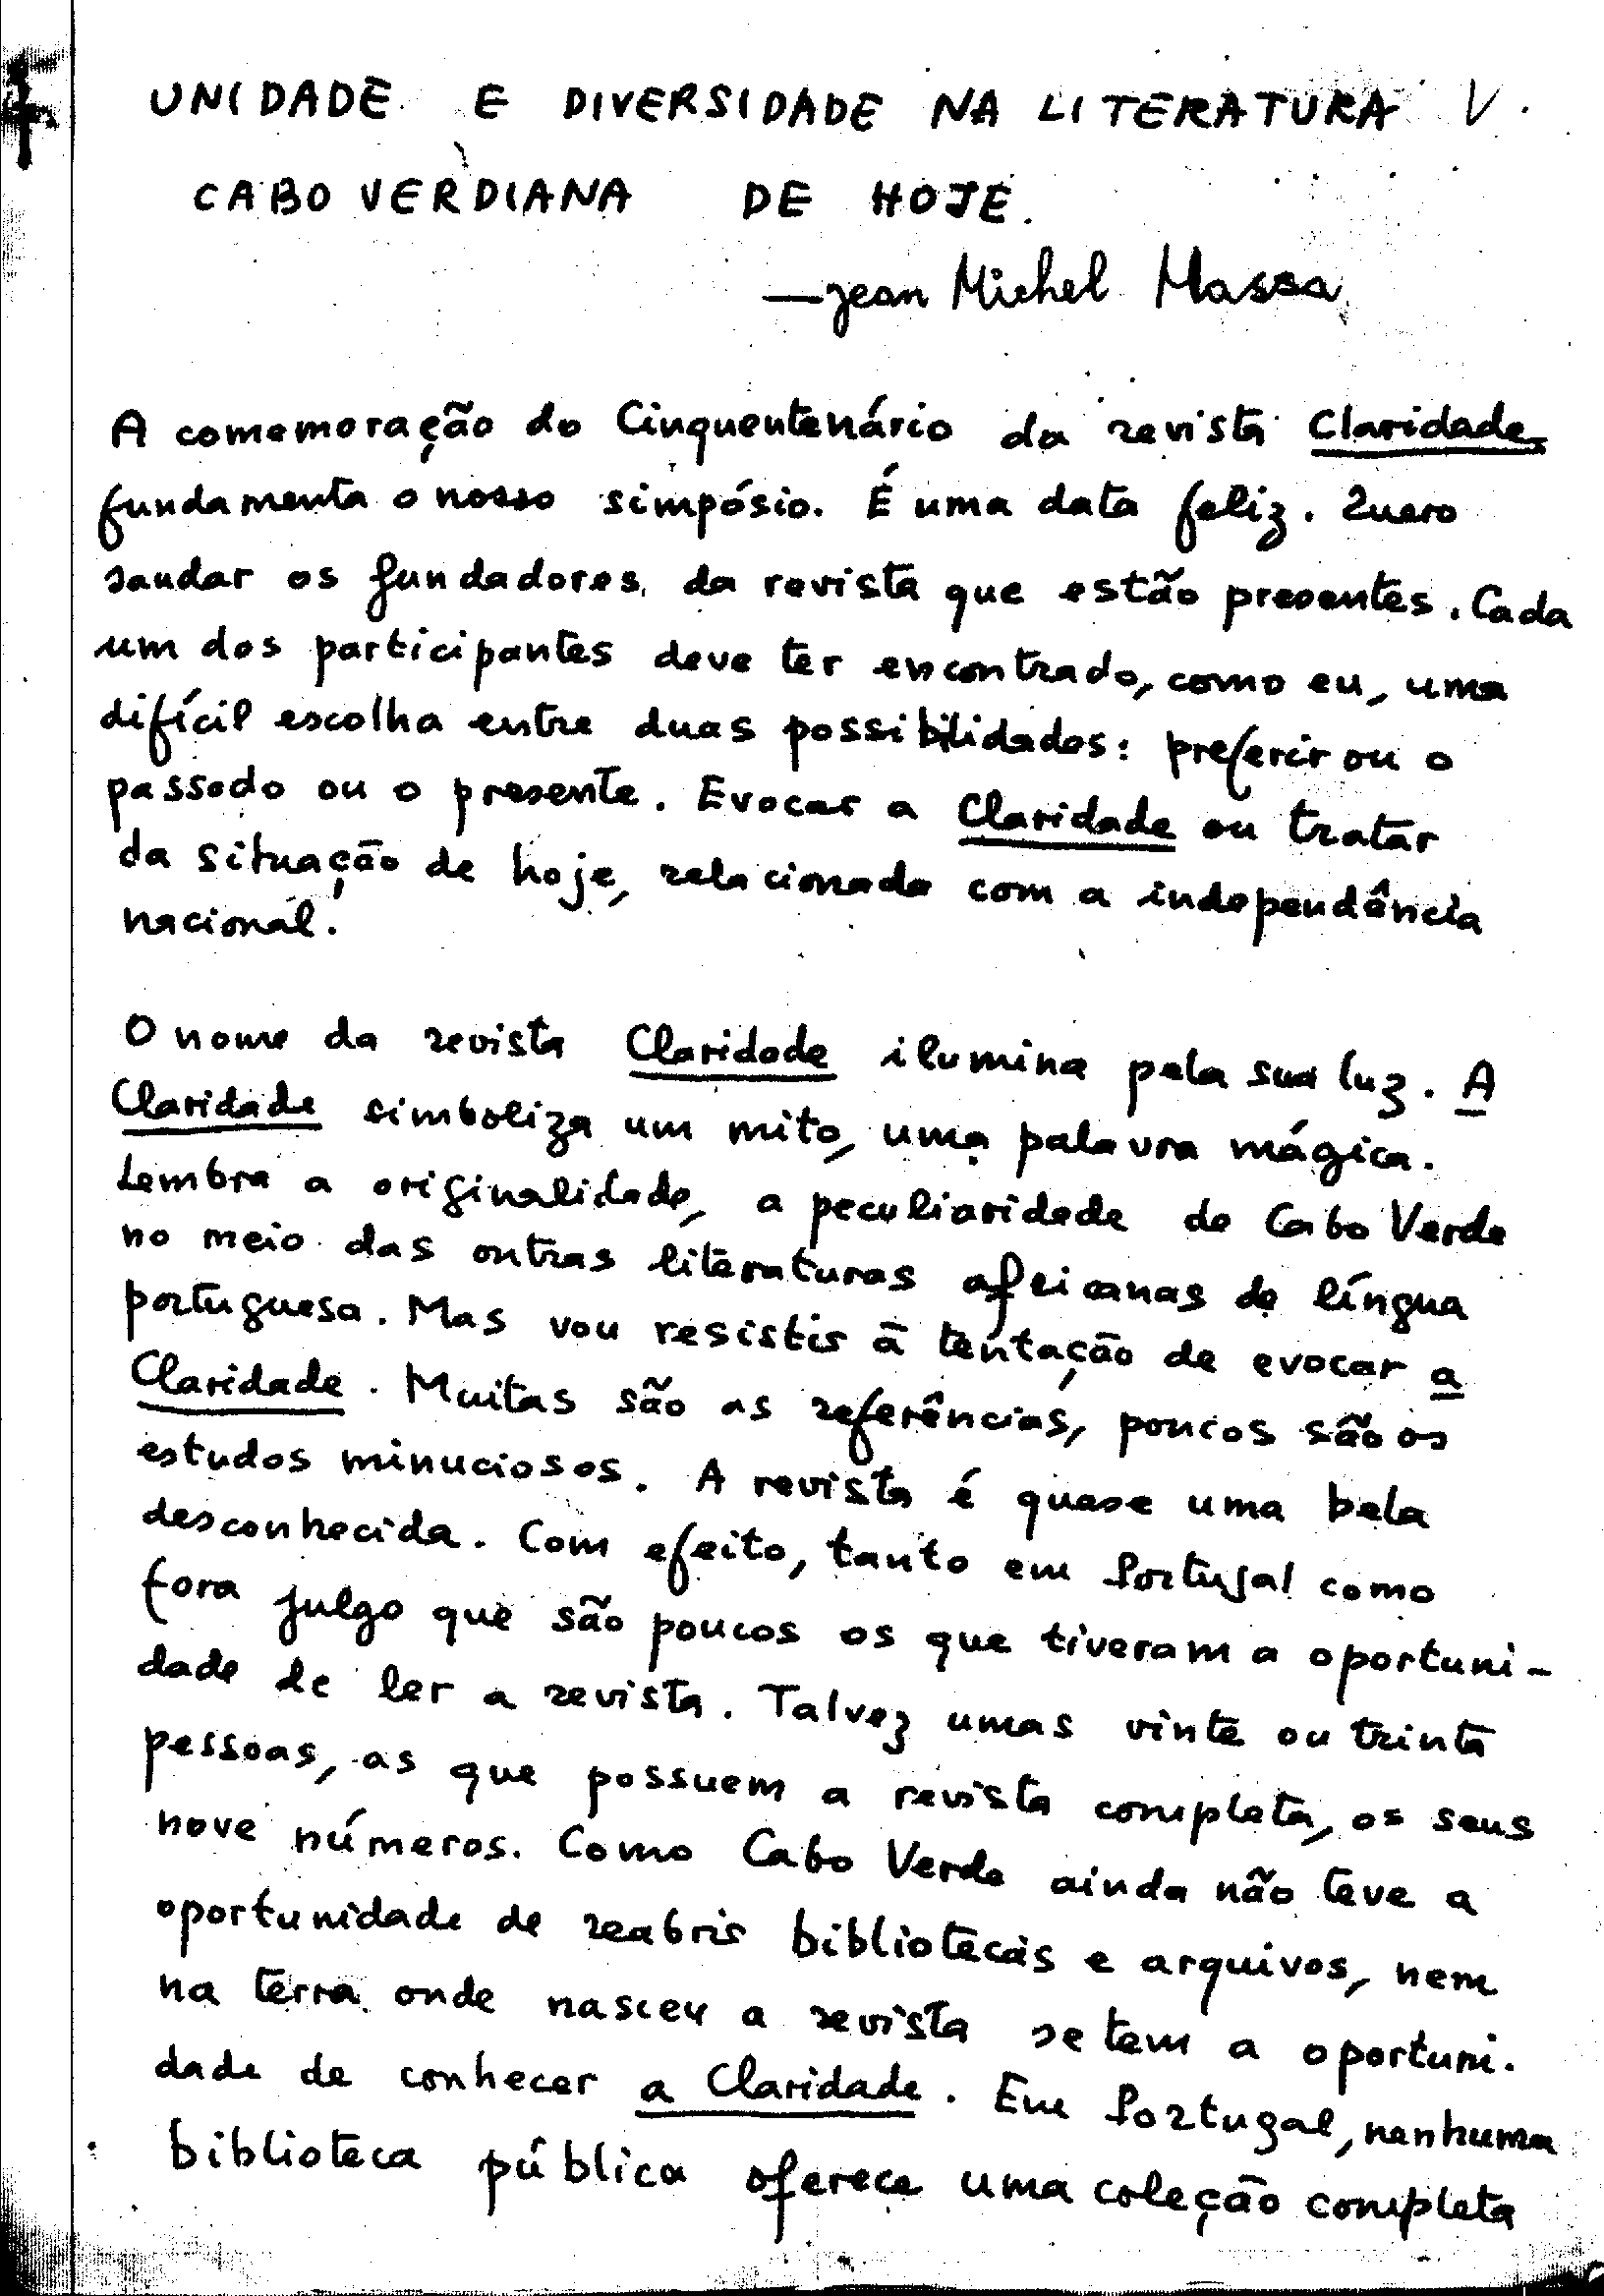 UNIDADE E DIVERSIDADE NA LITERATURA V.
CABOVERDIANA DE HOJE.
— Jean Michel Massa
A comemoração do Cinquentenário da revista Claridade,
fundamenta o nosso simpósio. É uma data feliz. Quero
saudar os fundadores da revista que estão presentes. Cada
um dos participantes deve ter encontrado, como eu, uma
difícil escolha entre duas possibilidades: preferir ou o
passado ou o presente. Evocar a Claridade ou tratar
da situação de hoje, relacionada com a independência
nacional.
O nome da revista Claridade ilumina pela sua luz. A
Claridade simboliza um mito, uma palavra mágica.
Lembra a originalidade, a peculiaridade de Cabo Verde
no meio das outras literaturas africanas de língua
portuguesa. Mas vou resistir à tentação de evocar a
Claridade. Muitas são as referências, poucos são os
estudos minuciosos. A revista é quase uma bela
desconhecida. Com efeito, tanto em Portugal como
fora julgo que são poucos os que tiveram a oportuni-
dade de ler a revista. Talvez umas vinte ou trinta
pessoas, as que possuem a revista completa, os seus
nove números. Como Cabo Verde ainda não teve a
oportunidade de reabrir bibliotecas e arquivos, nem
na terra onde nasceu a revista se tem a oportuni-
dade de conhecer a Claridade. Em Portugal, nenhuma
biblioteca pública oferece uma coleção completa